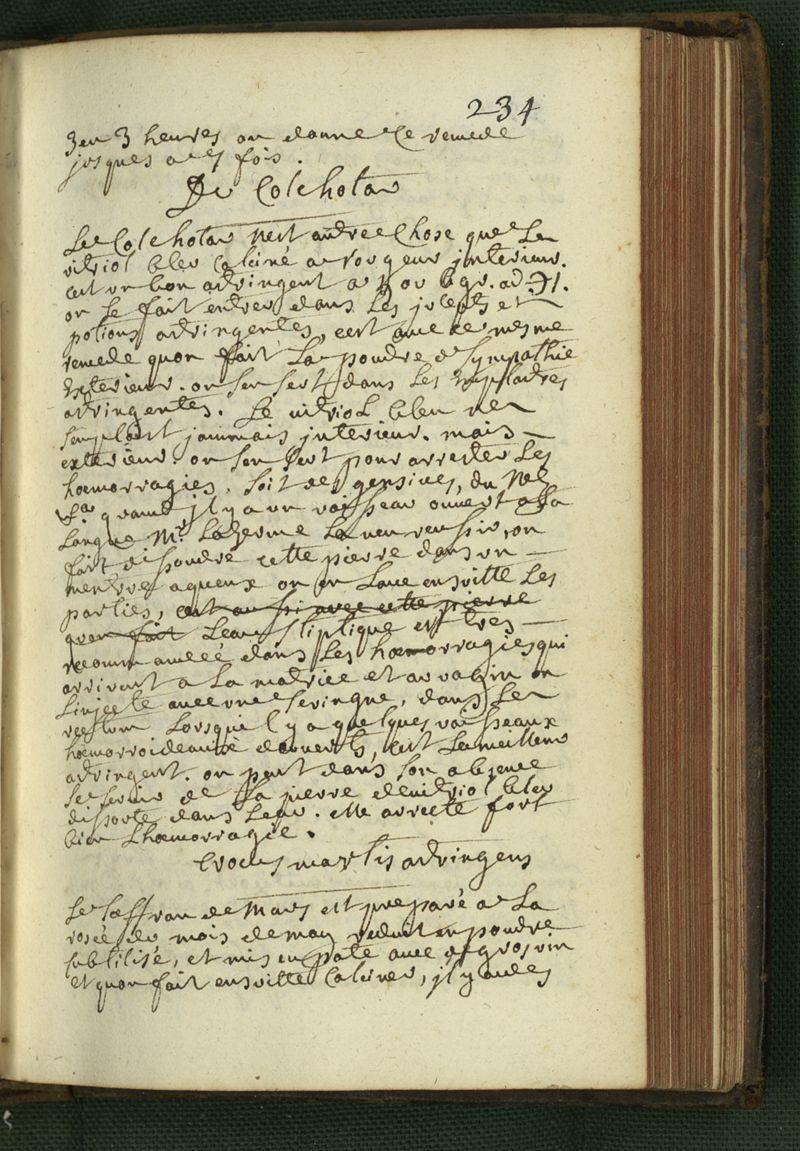 234
3 en 3 heures on donne ce remede
jusques a 5 fois.
De Colchotar
Le Colchotar n'est autre chose que le
vitriol bleu calciné a rougeur jnterieur.
cest un bon astringent a gr. ad ℈1.
on le fait entrer dans les juleps et
potions astringentes, cest avec ce mesme
remede quon fait la poudre de Sympathie
exterieur. on sen sert dans les emplastres
astringentes. Le vitriol bleu ne
semploit jammais jnterieur. mais
exterieur. on sen sert pour arrester les
hœmorragies, soit des gensives, du
quand jl y a un vaisseau ouvert a la
Langue Mr. Lazerme la veu reussir, on
fait dissoudre cette pierre dans un
menstrue aqueux on en Lave ensuitte les
parties, cest aussi avec cette pierre
quon fait Leau stiptique est tres
recommandée dans les hœmorragies qui
arrivent a la matrice et au vagin on
Linjecte avec une seringue, dans le
rectum Lorsquil y a quelques vaisseaux
hœmorroideaux ouverts, cest le meilleur
astringent. on peut dans son absence
se servir de la pierre de vitriol bleu
dissoute dans Leau. elle arreste fort
bien Lhœmorragie.
Crocus martis astringens
Le saffran de Mars est preparé a la
rosée du mois de may reduit en poudre
subtilisé, et mis en pate avec du gros vin
et quon fait ensuitte calciner, jl y a des